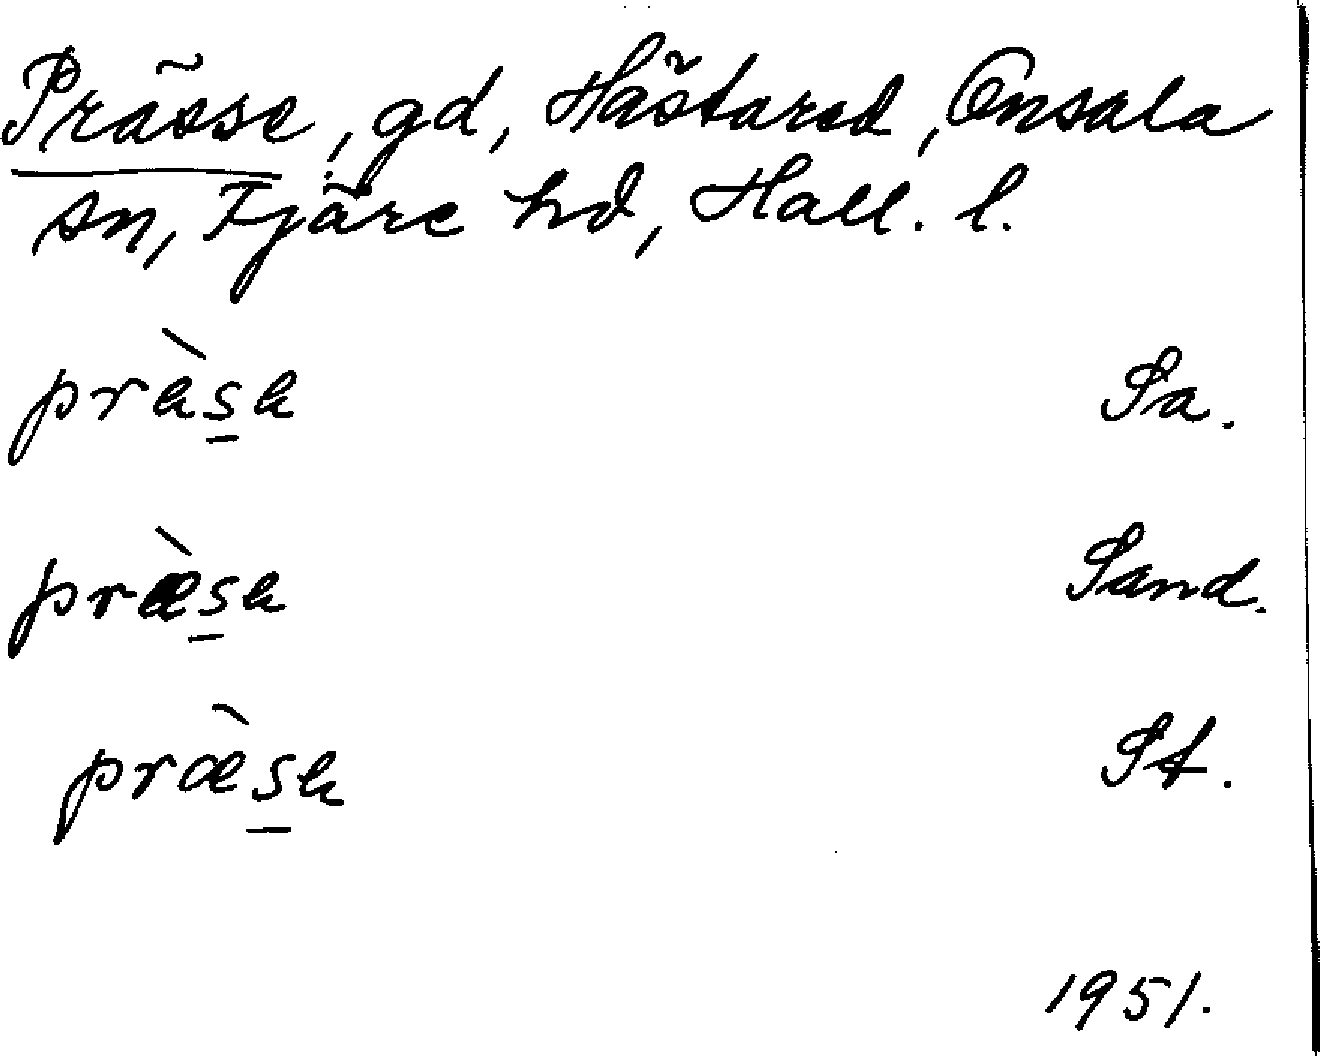 Prässe, gd, Hästared, Onsala
sn, Fjäre hd, Hall. l.
pràsa Sa.
præ̀sa Sand.
præ̀sa St.
1951.